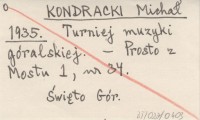 KONDRACKI Michał
1935. Turniej muzyki
góralskiej. — Prosto z
Mostu 1, nr 34.
Święto Gór.